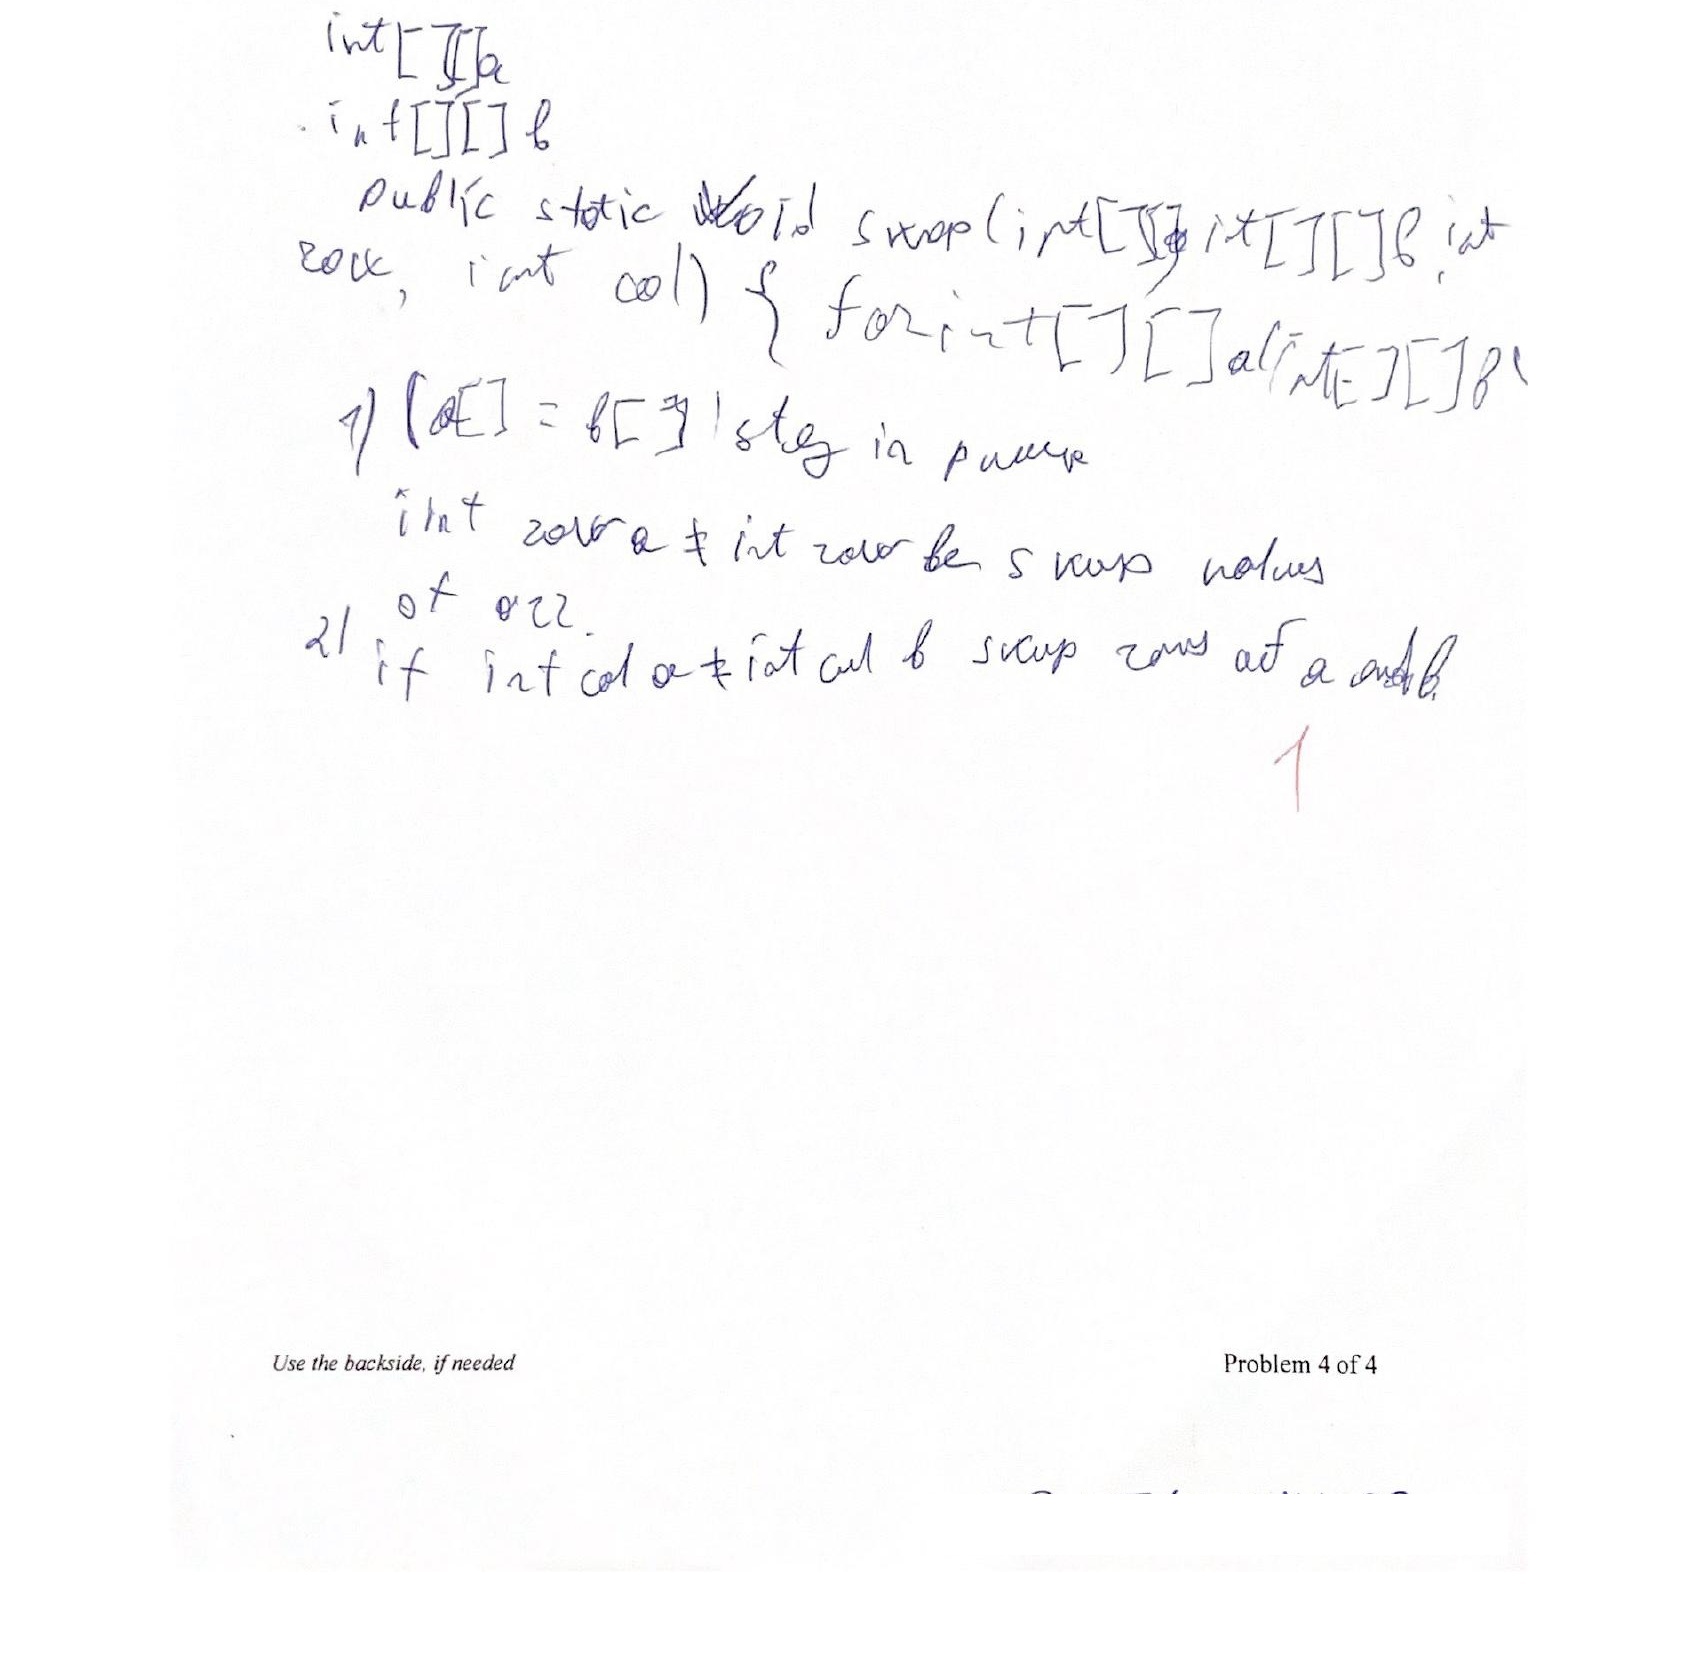 int[][]a
int[][] b
public static void swap(int[][]a, it[][]b, int
row, int col) { for int[][]a(int[][]b(
1) (a[] = b[] stay in
int row a ≠ int row be swap values
of arr.
2) if int col a ≠ int col b swap rows of a and b.
1
Use the backside, if needed
Problem 4 of 4